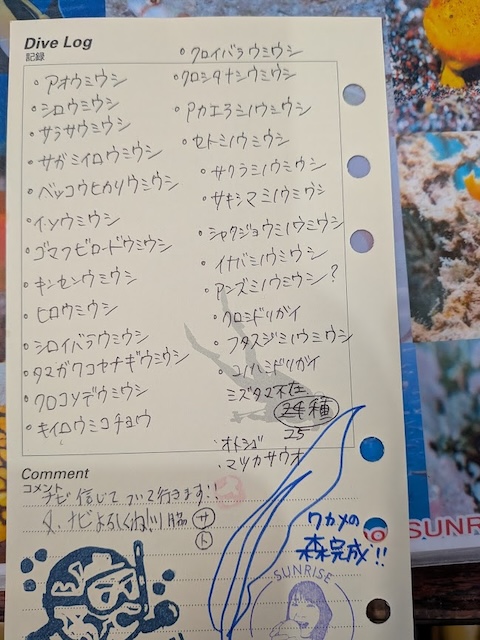 Dive Log
記録
・アオウミウシ
・シロウミウシ
・サラサウミウシ
・サガミイロウミウシ
・ベッコウヒカリウミウシ
・イソウミウシ
・ゴマフビロードウミウシ
・キンセンウミウシ
・ヒロウミウシ
・シロイバラウミウシ
・タマガワコヤナギウミウシ
・クロコソデウミウシ
・キイロウミコチョウ
・クロイバラウミウシ
・クロシタナシウミウシ
・アカエラミノウミウシ
・セトミノウミウシ
・サクラミノウミウシ
・サキシマミノウミウシ
・シャクジョウミノウミウシ
・イナバミノウミウシ
・アンズミノウミウシ?
・クロミドリガイ
・フタスジミノウミウシ
・コノハミドリガイ
ミズタマ不在
24種
25
・オトシゴ
・マツカサウオ
Comment
コメント
ナビ信じてついて行きます!!
ナビよろしくね
サト
ワカメの
森完成!!
SUNRISE
SUNR